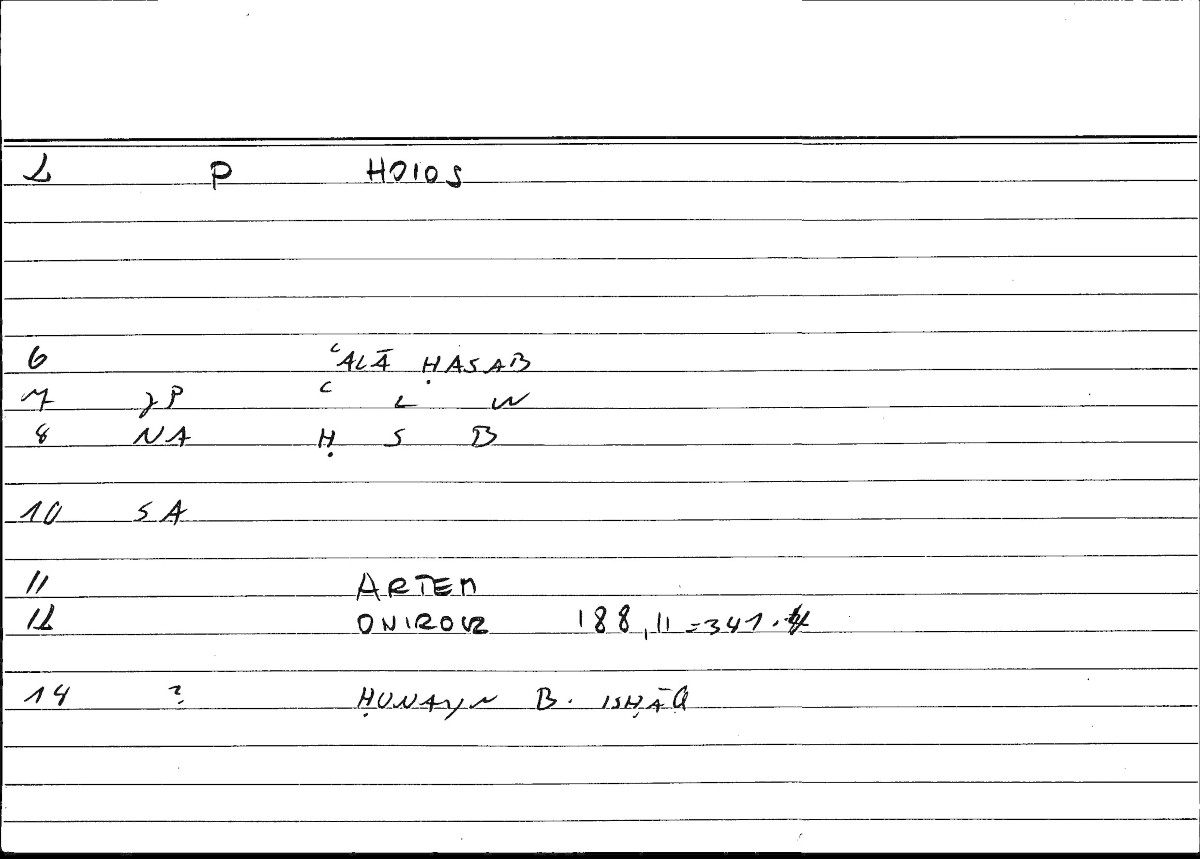 2 P HOIOS
6 ʿALĀ ḤASAB
7 JP ʿ L W
8 NA Ḥ S B
10 SA
11 ARTEM
12 ONIROCR 188,11=341.4
14 ? ḤUNAYN B. ISḤĀQ